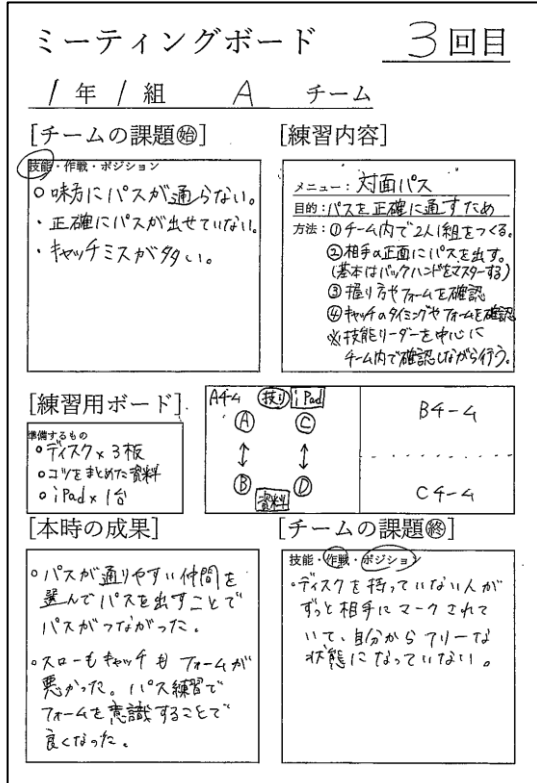 ミーティングボード 3回目
1年1組 A チーム
[チームの課題㊗]
技能・作戦・ポジション
○味方にパスが通らない。
・正確にパスが出せていない。
・キャッチミスが多い。
[練習内容]
メニュー：対面パス
目的：パスを正確に通すため
方法：①チーム内で2人1組をつくる。
②相手の正面にパスを出す。
(基本はバックハンドをマスターする)
③握り方やフォームを確認
④キャッチのタイミングやフォームを確認
※技能リーダーを中心に
チーム内で確認しながら行う。
[練習用ボード]
準備するもの
○ディスク×3枚
○コツをまとめた資料
○iPad×1台
Aチーム 技リ iPad
A C
B D
資料
Bチーム
Cチーム
[本時の成果]
○パスが通りやすい仲間を
選んでパスを出すことで
パスがつながった。
○スローもキャッチもフォームが
悪かった。パス練習で
フォームを意識することで
良くなった。
[チームの課題㊡]
技能・作戦・ポジション
・ディスクを持っていない人が
ずっと相手にマークされて
いて、自分からフリーな
状態になっていない。